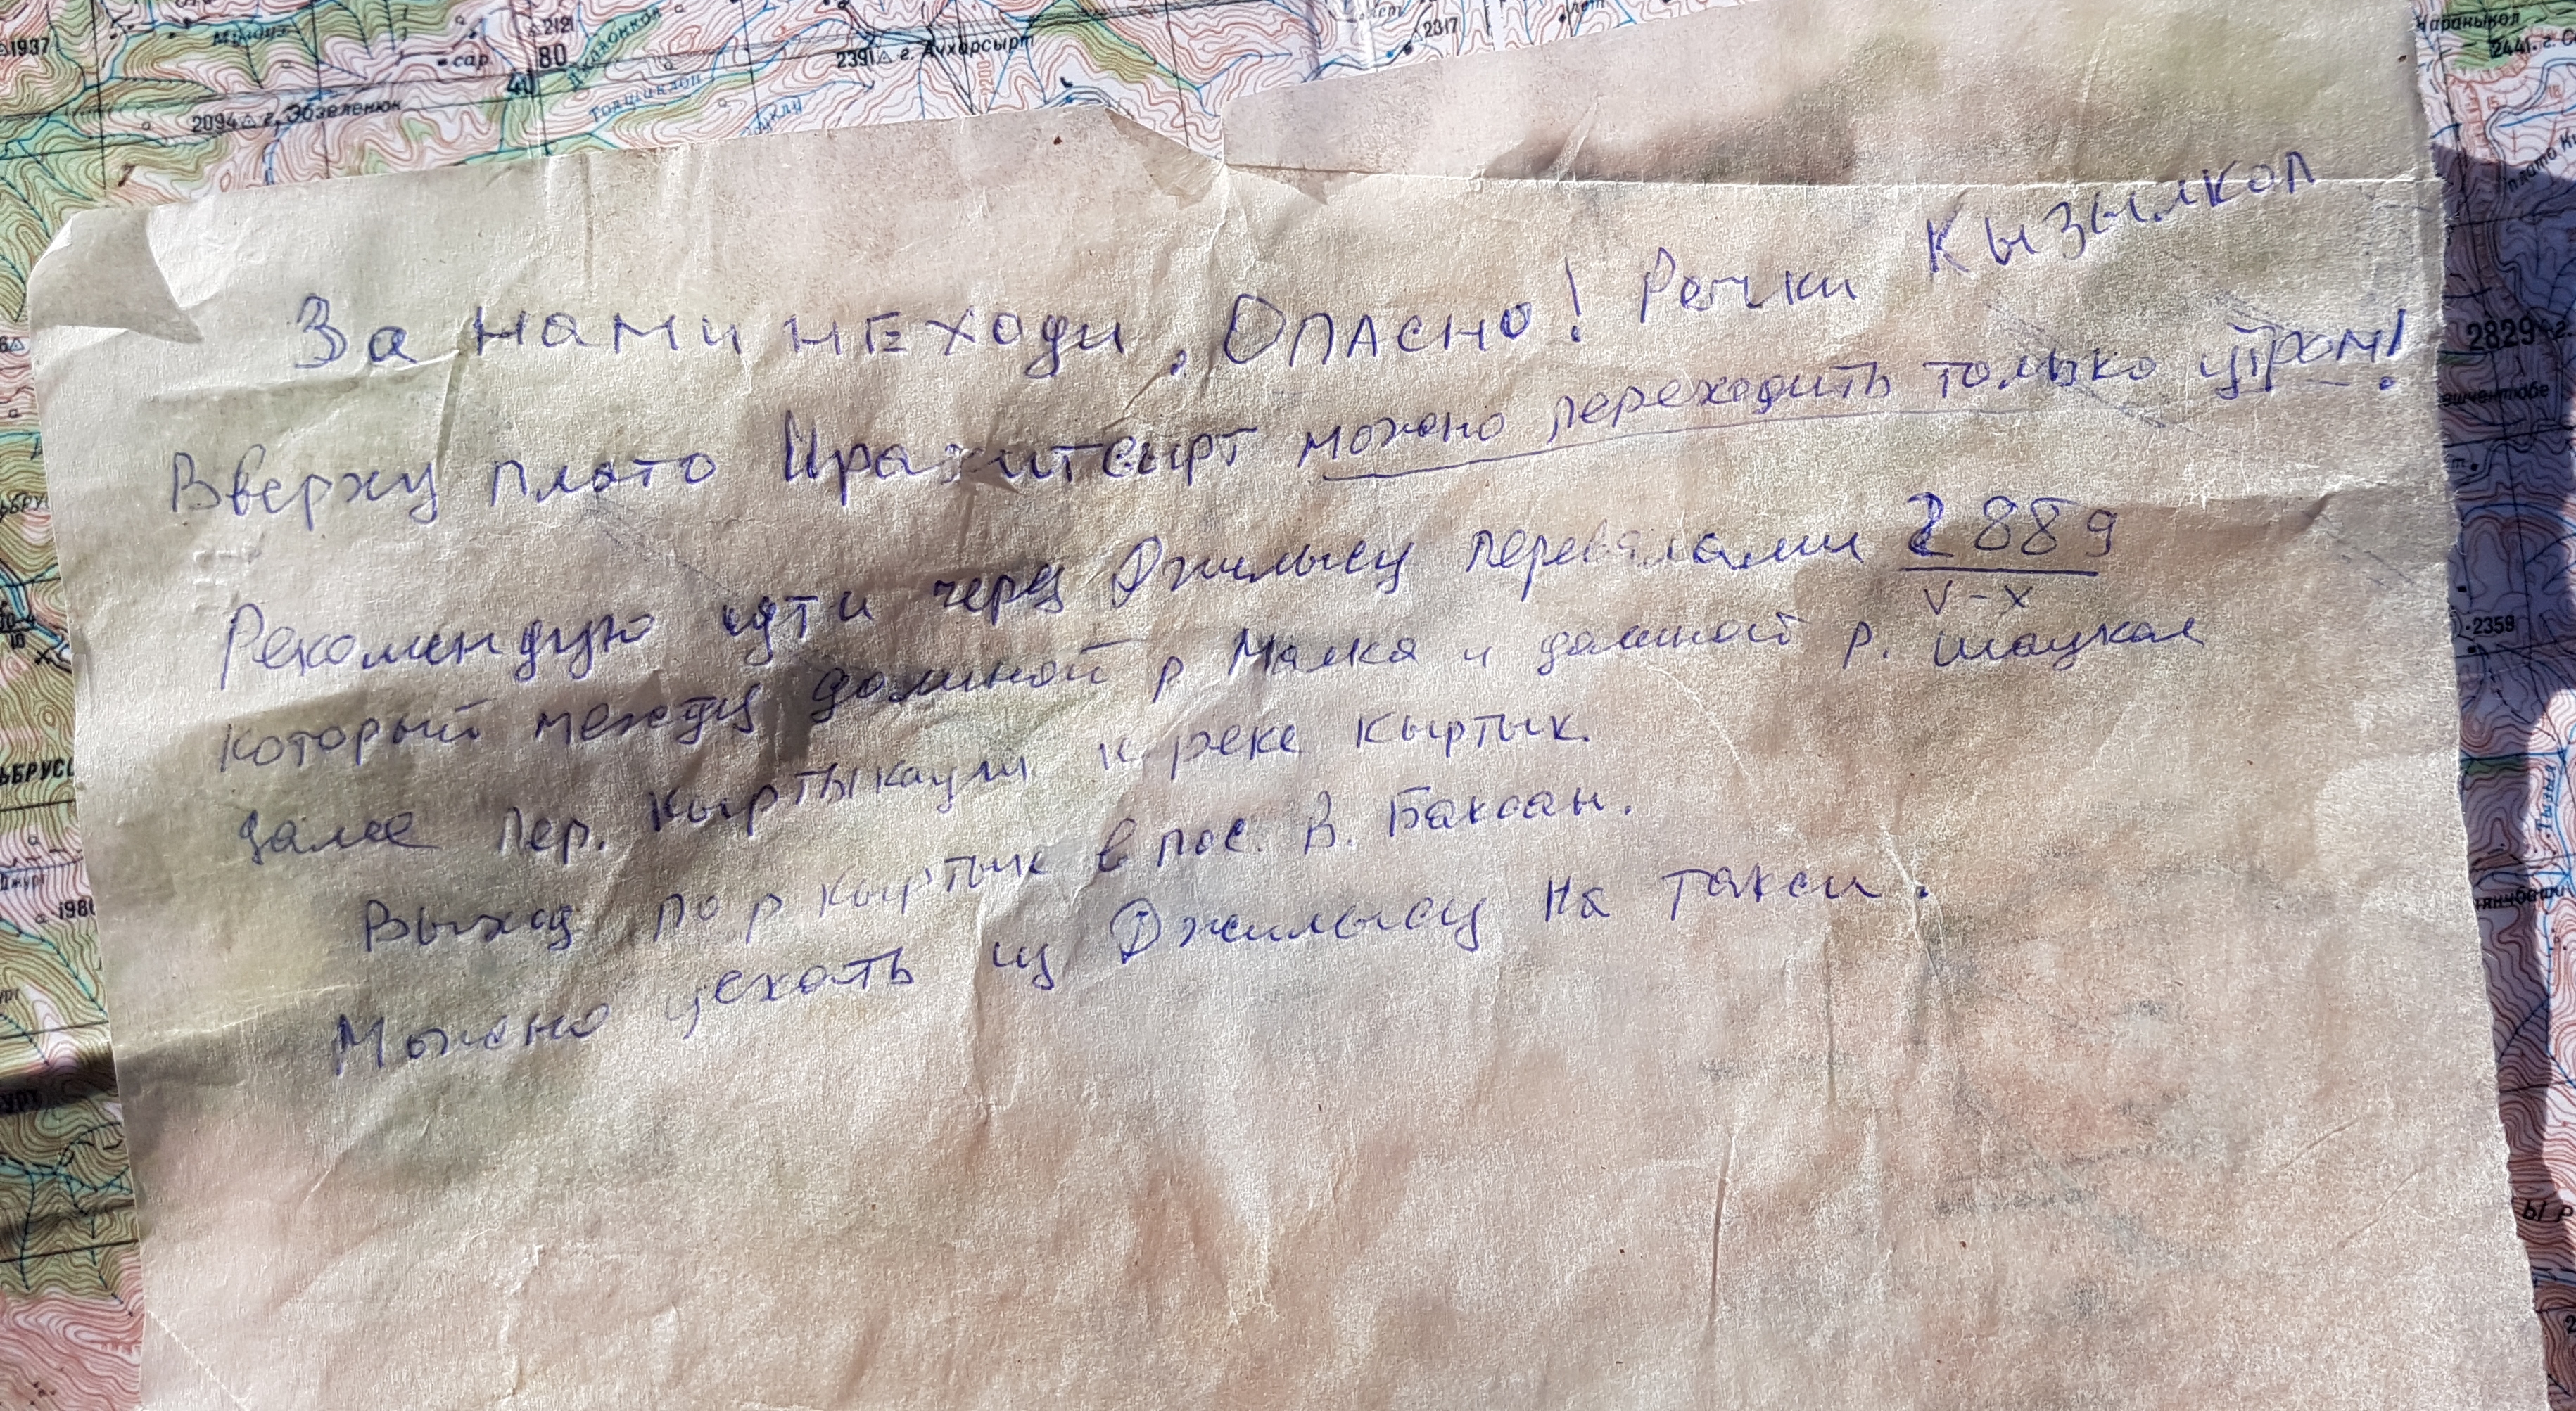 1937
Мундуз
сар.
△2121
80
40
Джалонкол
2391△ г. Аухарсырт
2317
2441. г.
2094△ г. Эбзеленюк
плато
За нами не ходи. Опасно! Речки Кызылкол
Вверху плато Ирахитсырт можно переходить только утром!
Рекомендую идти через Джилысу перевалами 2889
V-X
который между долиной р Малка и долиной р. Шаукол
далее пер. Кыртыкауш к реке Кыртык.
Выход по р Кыртык в пос. В. Баксан.
Можно уехать из Джилысу на такси.
2829
2359
ЬБРУС
Джурт
198
УРТ